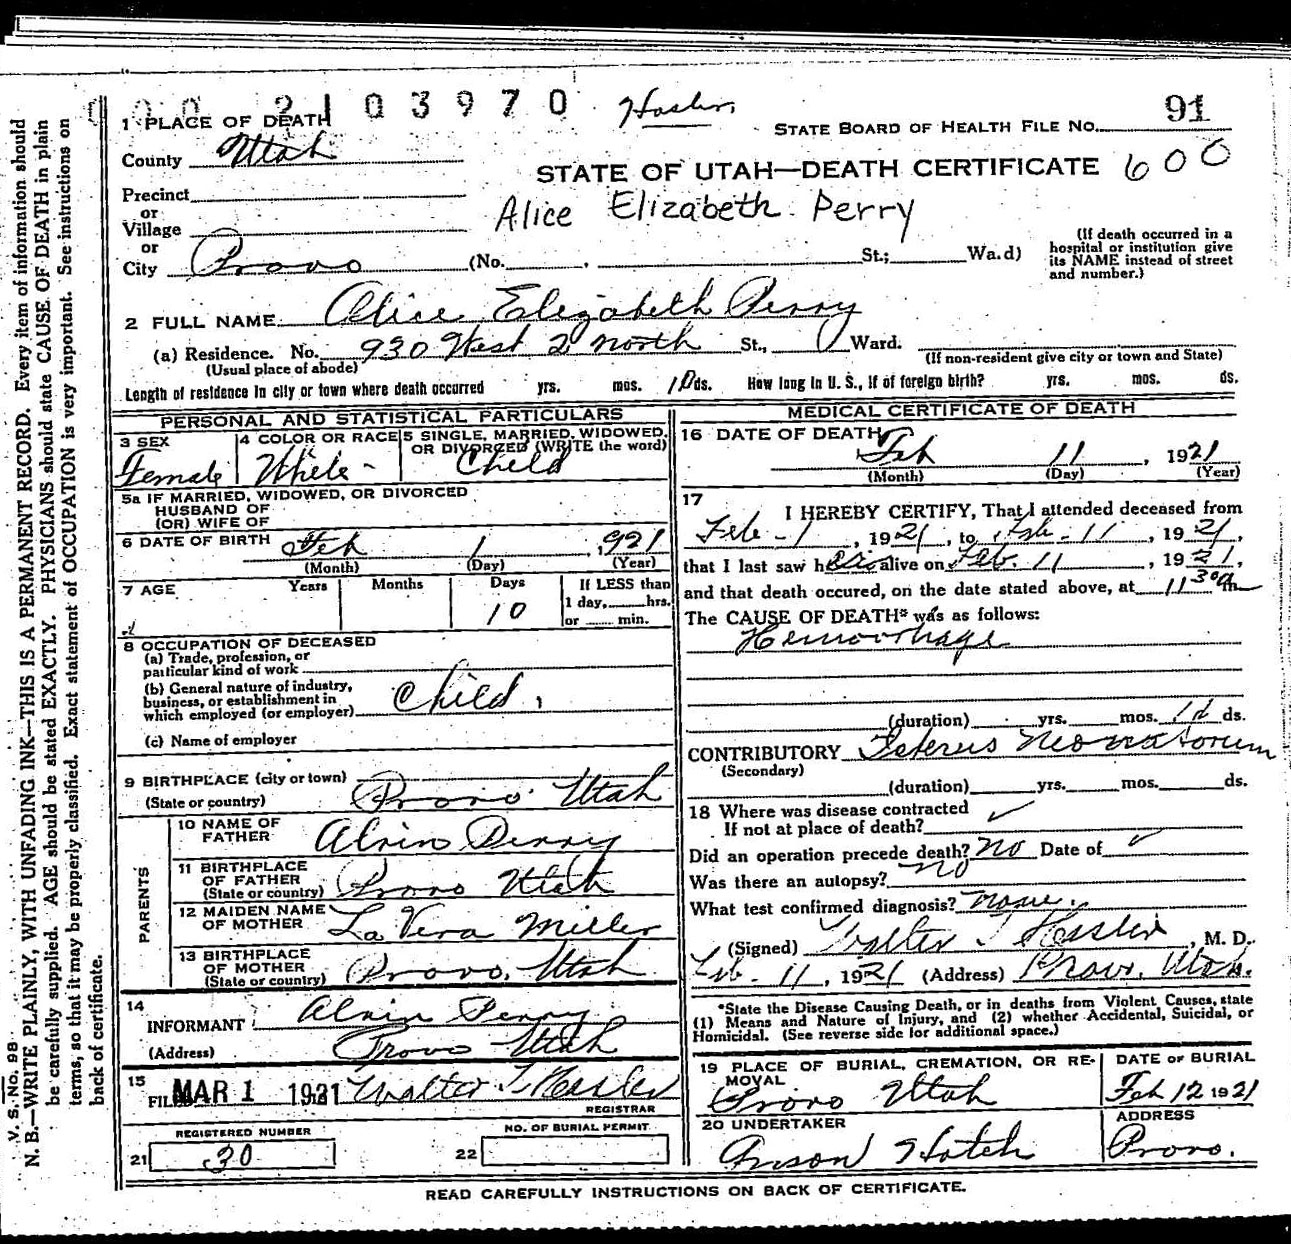 2103970 Hasler 91
1 PLACE OF DEATH
STATE BOARD OF HEALTH FILE NO.
County Utah
STATE OF UTAH—DEATH CERTIFICATE 600
Precinct
or
Village
Alice Elizabeth Perry
or
City Provo (No. , St.; Wa.d)
(If death occurred in a
hospital or institution give
its NAME instead of street
and number.)
2 FULL NAME Alice Elizabeth Perry
(a) Residence. No. 930 West 2 North St., Ward.
(Usual place of abode)
(If non-resident give city or town and State)
Length of residence in city or town where death occurred yrs. mos. 10 ds. How long in U. S., if of foreign birth? yrs. mos. ds.
PERSONAL AND STATISTICAL PARTICULARS
3 SEX
Female
4 COLOR OR RACE
White
5 SINGLE, MARRIED, WIDOWED,
OR DIVORCED (WRITE the word)
Child
5a IF MARRIED, WIDOWED, OR DIVORCED
HUSBAND OF
(OR) WIFE OF
6 DATE OF BIRTH Feb 1 , 1921
(Month) (Day) (Year)
7 AGE Years Months Days If LESS than
10 1 day, hrs.
or min.
8 OCCUPATION OF DECEASED
(a) Trade, profession, or
particular kind of work
(b) General nature of industry,
business, or establishment in
which employed (or employer) Child
(c) Name of employer
9 BIRTHPLACE (city or town)
(State or country) Provo Utah
PARENTS
10 NAME OF
FATHER Alvin Perry
11 BIRTHPLACE
OF FATHER
(State or country) Provo Utah
12 MAIDEN NAME
OF MOTHER La Vera Miller
13 BIRTHPLACE
OF MOTHER
(State or country) Provo, Utah
14
INFORMANT Alvin Perry
(Address) Provo Utah
15
FILED MAR 1 1921 Walter T Hasler
REGISTRAR
REGISTERED NUMBER
21 30
NO. OF BURIAL PERMIT
22
MEDICAL CERTIFICATE OF DEATH
16 DATE OF DEATH
Feb 11 , 1921
(Month) (Day) (Year)
17
I HEREBY CERTIFY, That I attended deceased from
Feb - 1 , 1921 , to Feb - 11 , 1921 ,
that I last saw her alive on Feb. 11 , 1921 ,
and that death occured, on the date stated above, at 11 30 a m
The CAUSE OF DEATH* was as follows:
Hemorrhage
(duration) yrs. mos. 1 d ds.
CONTRIBUTORY Icterus Neonatorum
(Secondary)
(duration) yrs. mos. ds.
18 Where was disease contracted
If not at place of death?
Did an operation precede death? No Date of
Was there an autopsy? No
What test confirmed diagnosis? None.
(Signed) Walter T Hasler , M. D.
Feb - 11 , 1921 (Address) Provo, Utah.
*State the Disease Causing Death, or in deaths from Violent Causes, state
(1) Means and Nature of Injury, and (2) whether Accidental, Suicidal, or
Homicidal. (See reverse side for additional space.)
19 PLACE OF BURIAL, CREMATION, OR RE-
MOVAL
Provo Utah
DATE OF BURIAL
Feb 12 1921
20 UNDERTAKER
Anson Hatch
ADDRESS
Provo.
READ CAREFULLY INSTRUCTIONS ON BACK OF CERTIFICATE.
V. S. No. 98
N. B.—WRITE PLAINLY, WITH UNFADING INK—THIS IS A PERMANENT RECORD. Every item of information should
be carefully supplied. AGE should be stated EXACTLY. PHYSICIANS should state CAUSE OF DEATH in plain
terms, so that it may be properly classified. Exact statement of OCCUPATION is very important. See instructions on
back of certificate.